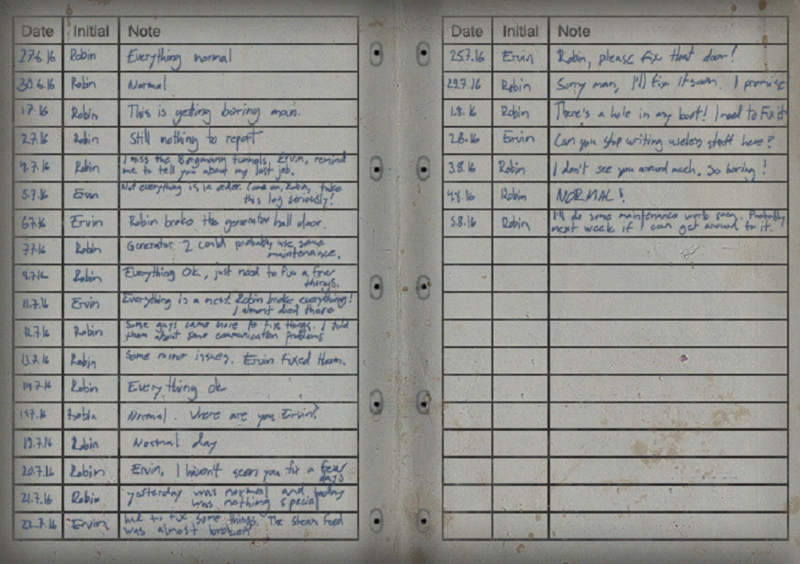 Date Initial Note
27.6.16 Robin Everything normal
30.6.16 Robin Normal
1.7.16 Robin This is getting boring man.
2.7.16 Robin Still nothing to report
4.7.16 Robin I miss the Bergmann tunnels, Ervin, remind
me to tell you about my last job.
5.7.16 Ervin Not everything is in order. Come on, Robin, take
this log seriously!
6.7.16 Ervin Robin broke the generator hall door.
7.7.16 Robin Generator 2 could probably use some
maintenance.
Robin Everything OK, just need to fix a few
things.
11.7.16 Ervin Everything is a mess. Robin broke everything!
I almost died there
Robin Some guys came here to fix things. I told
them about some communication problems
13.7.16 Robin Some minor issues. Ervin fixed them.
14.7.16 Robin Everything ok
15.7.16 Normal. Where are you Ervin?
19.7.16 Robin Normal day
20.7.16 Robin Ervin, I haven't seen you for a few
days
21.7.16 Robin yesterday was normal and today
was nothing special
Ervin had to fix some things. The steam feed
was almost broken
Date Initial Note
25.7.16 Ervin Robin, please fix that door!
29.7.16 Robin Sorry man, I'll fix it soon. I promise
1.8.16 Robin There's a hole in my boot! I need to fix it
2.8.16 Ervin Can you stop writing useless stuff here?
3.8.16 Robin I don't see you around much. So boring!
4.8.16 Robin NORMAL!
5.8.16 Robin I'll do some maintenance work soon. Probably
next week if I can get around to it.